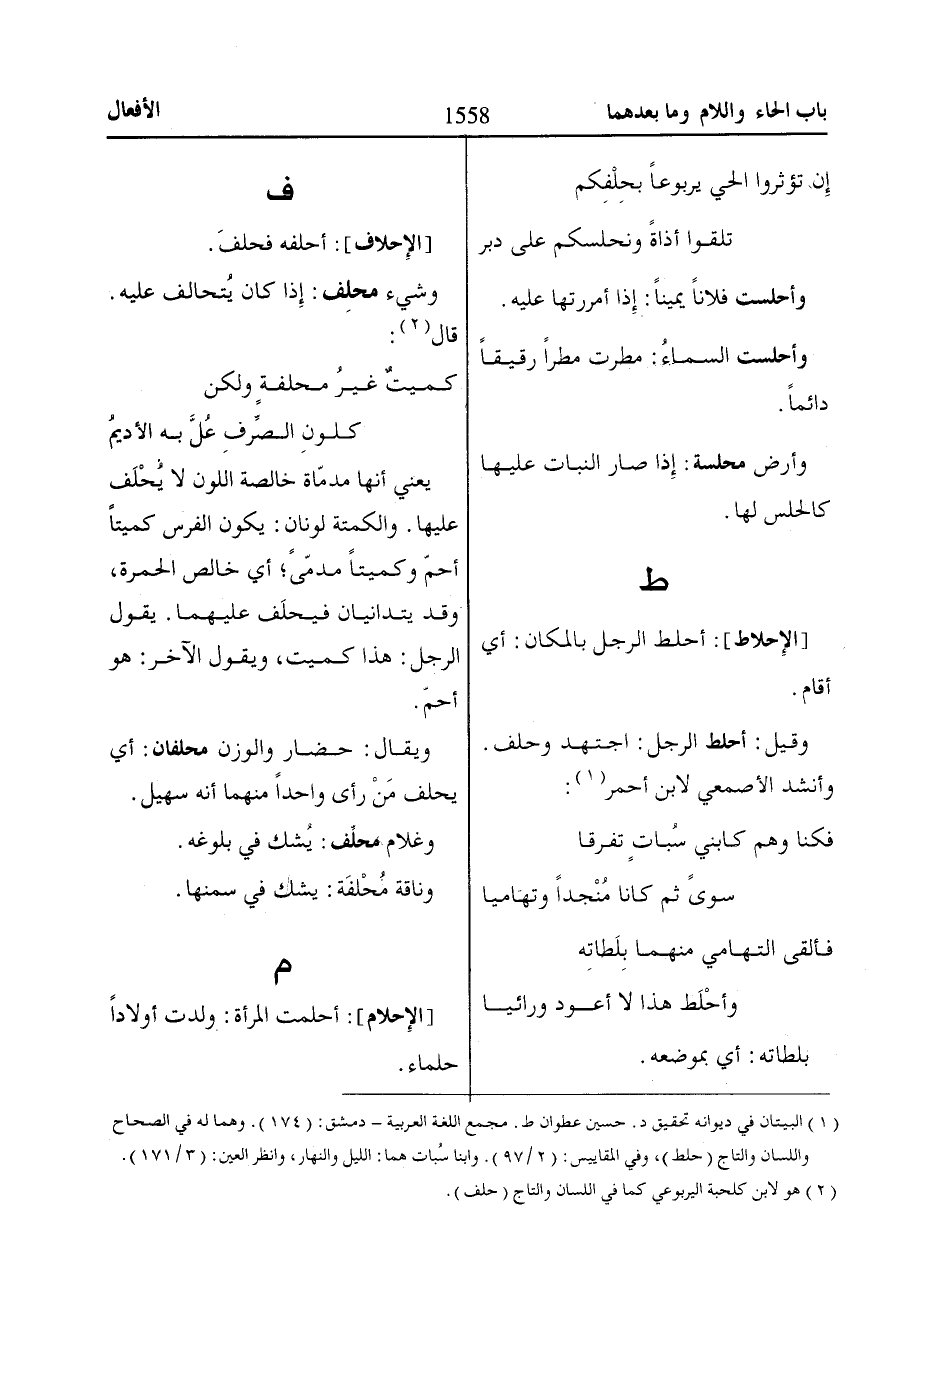 باب الحاء واللام وما بعدهما
1558
الأفعال
إِن تؤثروا الحي يربوعاً بحِلْفِكم
تلقوا أذاةً ونحلسكم على دبر
وأحلست فلاناً يميناً: إِذا أمررتها عليه.
وأحلست السماءُ: مطرت مطراً رقيقاً
دائماً.
وأرض محلسة: إِذا صار النبات عليها
كالحلس لها.
ط
[الإِحلاط]: أحلط الرجل بالمكان: أي
أقام.
وقيل: أحلط الرجل: اجتهد وحلف.
وأنشد الأصمعي لابن أحمر(١):
فكنا وهم كابني سُباتٍ تفرقا
سوىً ثم كانا مُنْجداً وتهاميا
فألقى التهامي منهما بِلَطاتِه
وأحْلَط هذا لا أعود ورائيا
بلطاته: أي بموضعه.
ف
[الإِحلاف]: أحلفه فحلفَ.
وشيء محلِف: إِذا كان يُتحالف عليه.
قال(٢):
كميتٌ غيرُ محلفةٍ ولكن
كلونِ الصِّرفِ عُلَّ به الأديمُ
يعني أنها مدمّاة خالصة اللون لا يُحْلَف
عليها. والكمتة لونان: يكون الفرس كميتاً
أحمّ وكميتاً مدمّىً؛ أي خالص الحمرة،
وقد يتدانيان فيحلَف عليهما. يقول
الرجل: هذا كميت، ويقول الآخر: هو
أحمّ.
ويقال: حضار والوزن محلفان: أي
يحلف مَنْ رأى واحداً منهما أنه سهيل.
وغلام محلِّف: يُشك في بلوغه.
وناقة مُحْلفَة: يشك في سمنها.
م
[الإِحلام]: أحلمت المرأة: ولدت أولاداً
حلماء.
(١) البيتان في ديوانه تحقيق د. حسين عطوان ط. مجمع اللغة العربية – دمشق: (١٧٤). وهما له في الصحاح
واللسان والتاج (حلط)، وفي المقاييس: (٢/ ٩٧). وابنا سُبات هما: الليل والنهار، وانظر العين: (٣/ ١٧١).
(٢) هو لابن كلحبة اليربوعي كما في اللسان والتاج (حلف).